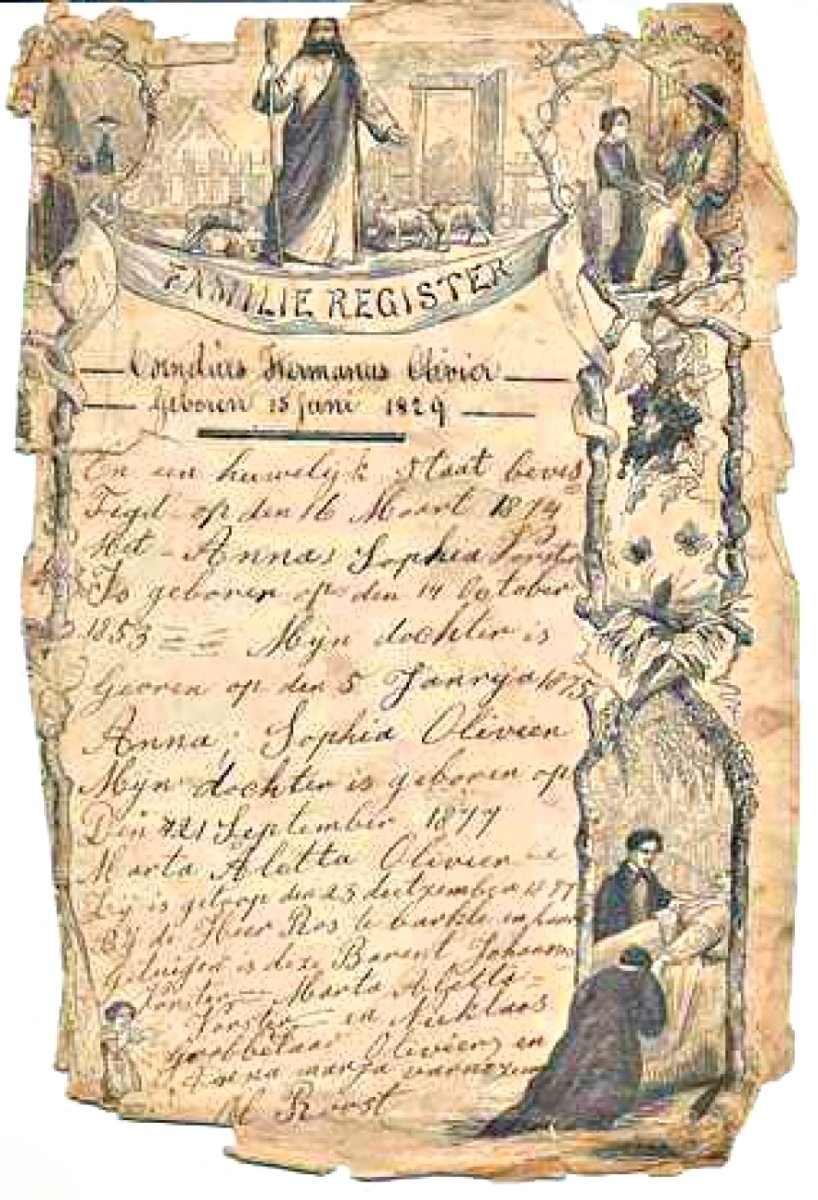 FAMILIE REGISTER
Cornelius Hermanus Olivier
geboren 15 Juni 1829
En een huwelyk Staat beves
Tigd op den 16 Maart 1874
Met Anna Sophia Vorster
Is geboren op den 14 October
1853 Myn dochter is
Georen op den 5 Janrija 1875
Anna Sophia Olivier
Myn dochter is geboren op
Den 21 September 1877
Marta Aletta Olivier
Zij is getoop den 23 1877
bij de Heer Ros te barkle en
Getuigen is deze Barent Johannes
Vorster Marta Aletta
Vorster en Nicklaas
Olivier en
Anna marya
M Rost